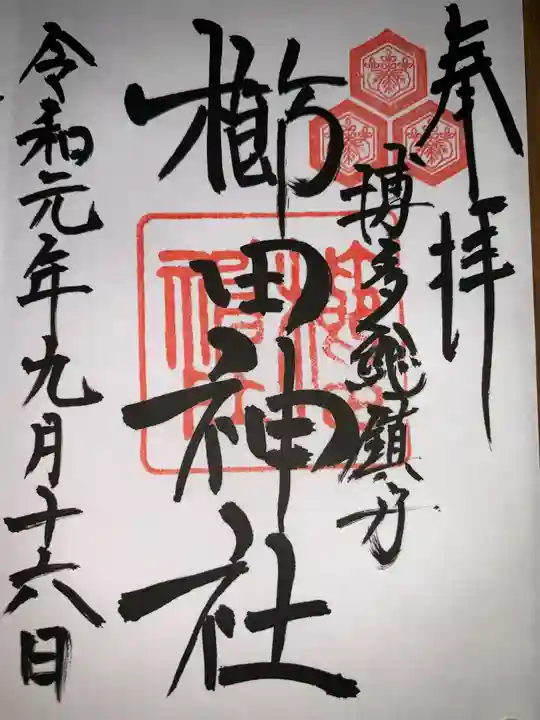 奉拝
博多総鎮守
櫛田神社
令和元年九月十六日